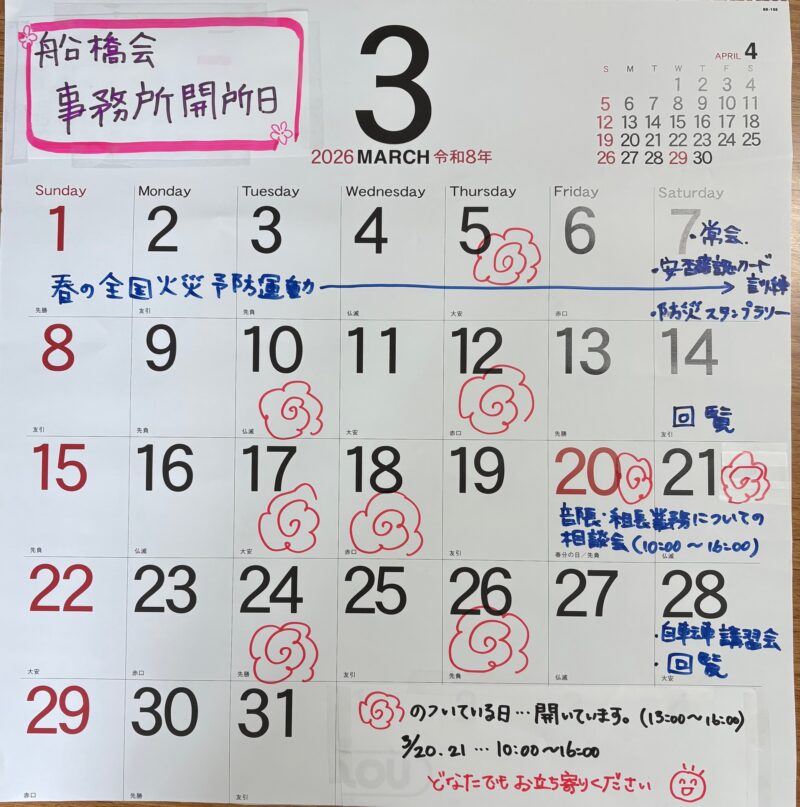 BS-158
船橋会
事務所開所日
3
2026 MARCH 令和8年
APRIL 4
S M T W T F S
1 2 3 4
5 6 7 8 9 10 11
12 13 14 15 16 17 18
19 20 21 22 23 24 25
26 27 28 29 30
Sunday Monday Tuesday Wednesday Thursday Friday Saturday
1 2 3 4 5 6 7
・常会
・安否確認カード
訓練
春の全国火災予防運動
・防災スタンプラリー
先勝 友引 先負 仏滅 大安 赤口
8 9 10 11 12 13 14
回覧
友引 先負 仏滅 大安 赤口 先勝 友引
15 16 17 18 19 20 21
部長・組長業務についての
相談会(10:00～16:00)
先負 仏滅 大安 赤口 友引 春分の日/先負 仏滅
22 23 24 25 26 27 28
・自転車講習会
・回覧
大安 赤口 先勝 友引 先負 仏滅 大安
29 30 31
のついている日…開いています。(13:00～16:00)
3/20.21…10:00～16:00
どなたでもお立ち寄りください
赤口 先勝 友引